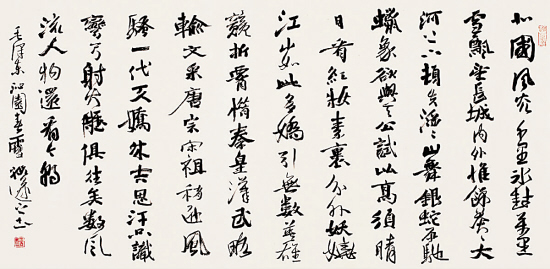 北國風光千里冰封萬里
雪飄望長城內外惟餘莽莽大
河上下頓失滔滔山舞銀蛇原馳
蠟象欲與天公試比高須晴
日看紅妝素裹分外妖嬈
江山如此多嬌引無數英雄
競折腰惜秦皇漢武略
輸文采唐宗宋祖稍遜風
騷一代天驕成吉思汗只識
彎弓射大雕俱往矣數風
流人物還看今朝
毛澤東沁園春雪